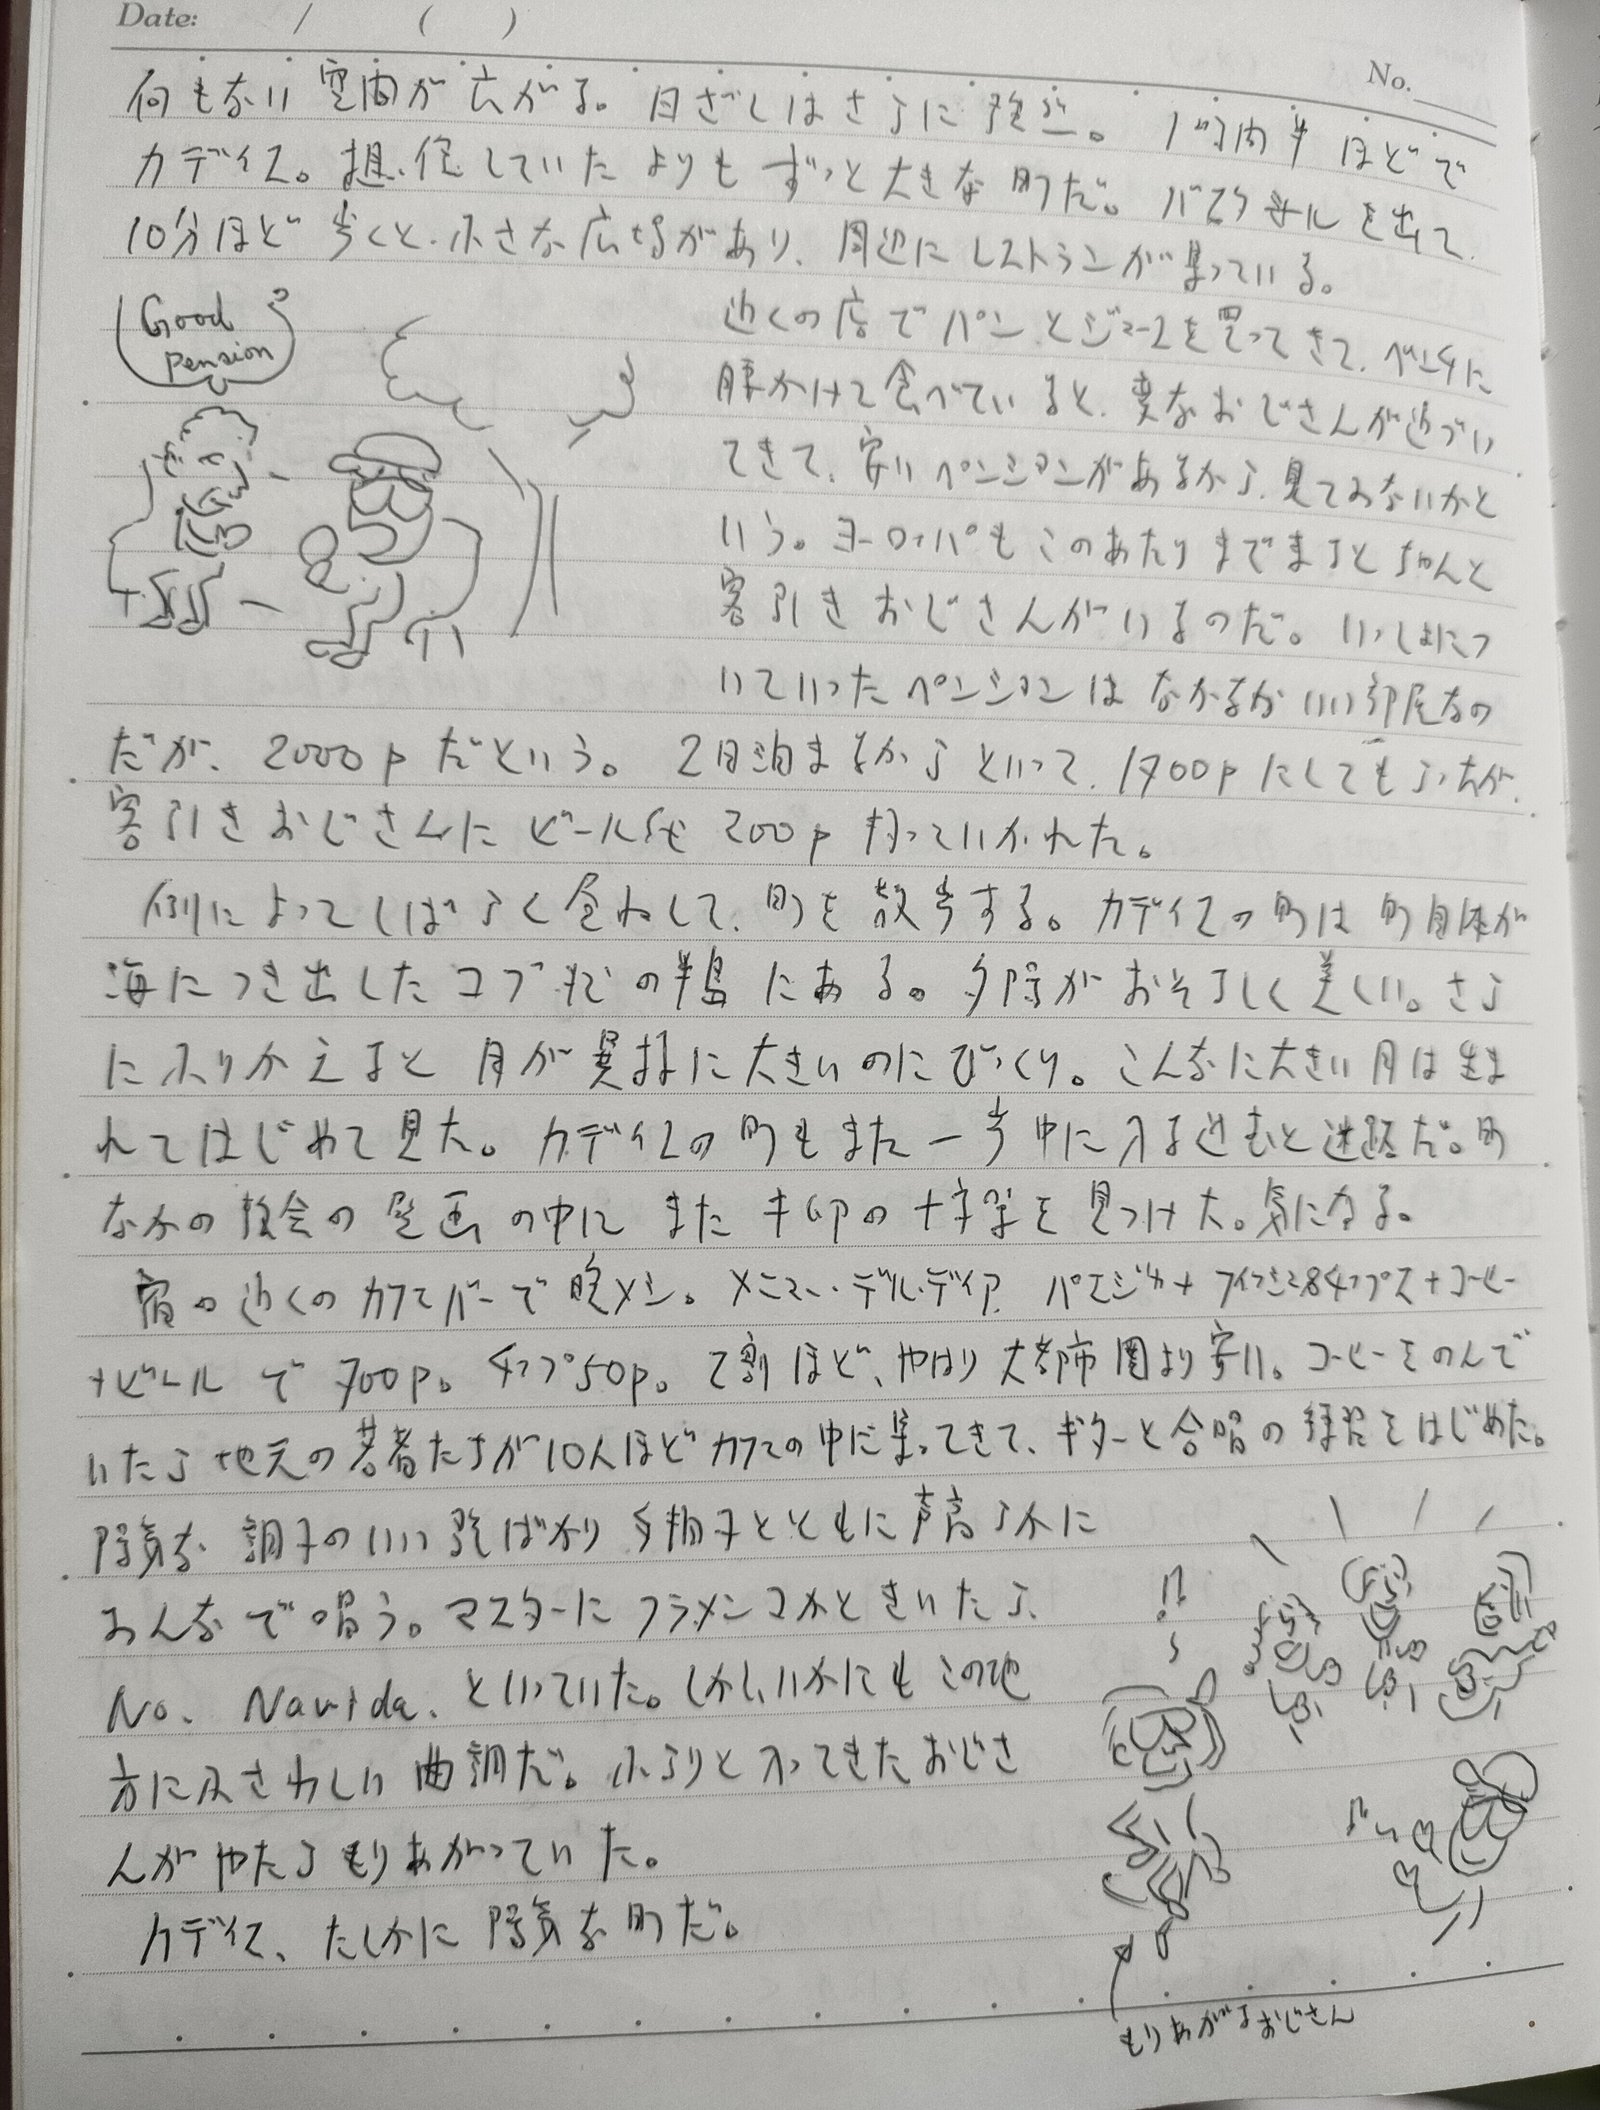 Date: / ( )
No.
何もない空間が広がる。日ざしはさらに強烈。1時間半ほどで
カディス。想像していたよりもずっと大きな町だ。バスターミナルを出て
10分ほど歩くと、小さな広場があり、周辺にレストランが集っている。
Good
pension
近くの店でパンとジュースを買ってきて、ベンチに
腰かけて食べていると、変なおじさんが近づい
てきて、安いペンションがあるから、見てみないかと
いう。ヨーロッパもこのあたりまでまるとちゃんと
客引きおじさんがいるのだ。いっしょにつ
いていったペンションはなかなかいい部屋なの
だが、2000pだという。2日泊まるからといって、1700pにしてもらったが、
客引きおじさんにビール代200p持っていかれた。
例によってしばらく昼ねして、町を散歩する。カディスの町は町自体が
海につき出したコブ状の半島にある。夕陽がおそろしく美しい。さら
にふりかえると月が異様に大きいのにびっくり。こんなに大きい月は生ま
れてはじめて見た。カディスの町もまた一歩中に入り進むと迷路だ。町
なかの教会の壁画の中にまたキ印の十字架を見つけた。気になる。
宿の近くのカフェバーで晩メシ。メニュー・デル・ディア、パエジャ+フィッシュ&チップス+コーヒー
+ビールで700p。チップ50p。2割ほど、やはり大都市圏より安い。コーヒーをのんで
いたら地元の若者たちが10人ほどカフェの中に集ってきて、ギターと合唱の練習をはじめた。
陽気な調子のいい歌ばかり手拍子とともに声高らかに
みんなで唱う。マスターにフラメンコかときいたら、
No、Navida、といっていた。しかしいかにもこの地
方にふさわしい曲調だ。ふらりと入ってきたおじさ
んがやたらもりあがっていた。
カディス、たしかに陽気な町だ。
!?
もりあがるおじさん